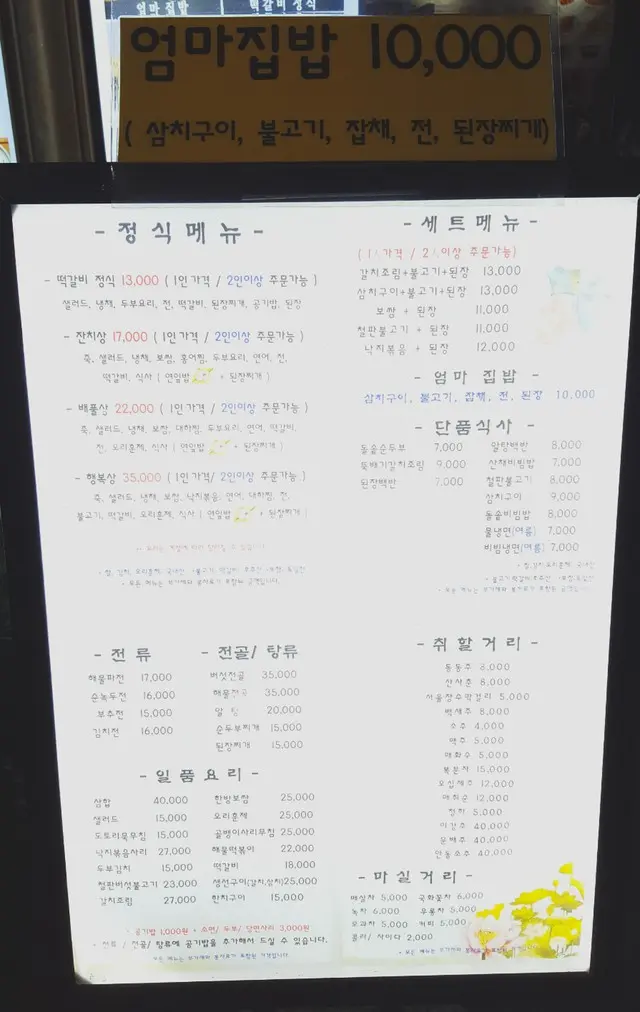 엄마집밥 떡갈비정식
엄마집밥 10,000
( 삼치구이, 불고기, 잡채, 전, 된장찌개)
- 정식메뉴 -
- 떡갈비 정식 13,000 ( 1인가격 / 2인이상 주문가능 )
샐러드, 냉채, 두부요리, 전, 떡갈비, 된장찌개, 공기밥, 된장
- 잔치상 17,000 ( 1인가격 / 2인이상 주문가능 )
죽, 샐러드, 냉채, 보쌈, 홍어찜, 두부요리, 연어, 전,
떡갈비, 식사 ( 연잎밥 + 된장찌개 )
- 배불상 22,000 ( 1인가격 / 2인이상 주문가능 )
죽, 샐러드, 냉채, 보쌈, 대하찜, 두부요리, 연어, 떡갈비,
전, 오리훈제, 식사 ( 연잎밥 + 된장찌개 )
- 행복상 35,000 ( 1인가격/ 2인이상 주문가능 )
죽, 샐러드, 냉채, 보쌈, 낙지볶음, 연어, 대하찜, 전,
불고기, 떡갈비, 오리훈제, 식사 ( 연잎밥 + 된장찌개 )
- 세트메뉴 -
가격 / 2 이상 주문가능)
갈치조림+불고기+된장 13,000
삼치구이+불고기+된장 13,000
보쌈 + 된장 11,000
철판불고기 + 된장 11,000
낙지볶음 + 된장 12,000
- 엄마 집밥 -
삼치구이, 불고기, 잡채, 전, 된장 10,000
- 단품식사 -
돌솥순두부 7,000
뚝배기갈치조림 9,000
된장백반 7,000
알탕백반 8,000
산채비빔밥 7,000
철판불고기 8,000
삼치구이 9,000
돌솥비빔밥 8,000
물냉면(여름) 7,000
비빔냉면(여름) 7,000
- 전류 -
해물파전 17,000
순녹두전 16,000
부추전 15,000
김치전 16,000
- 전골/ 탕류 -
버섯전골 35,000
해물전골 35,000
알 탕 20,000
순두부찌개 15,000
된장찌개 15,000
- 일품요리 -
삼합 40,000
샐러드 15,000
도토리묵무침 15,000
낙지볶음사리 27,000
두부김치 15,000
철판버섯불고기 23,000
갈치조림 27,000
한방보쌈 25,000
오리훈제 25,000
골뱅이사리무침 25,000
해물떡볶이 22,000
떡갈비 18,000
생선구이(갈치,삼치)25,000
한치구이 15,000
* 공기밥 1,000원 * 소면/ 두부/ 당면사리 3,000원
* 전류 / 전골/ 탕류에 공기밥을 추가해서 드실 수 있습니다.
*모든 메뉴는 부가세와 봉사료가 포함된 가격입니다.
- 취할거리 -
동동주 8,000
산사춘 8,000
서울장수막걸리 5,000
백세주 8,000
소주 4,000
맥주 5,000
매화수 5,000
복분자 15,000
오십세주 12,000
매취순 12,000
청하 5,000
이강주 40,000
문배주 40,000
안동소주 40,000
- 마실거리 -
매실차 5,000 국화꽃차 6,000
녹차 6,000 우롱차 5,000
모과차 5,000 커피 5,000
콜라/ 사이다 2,000